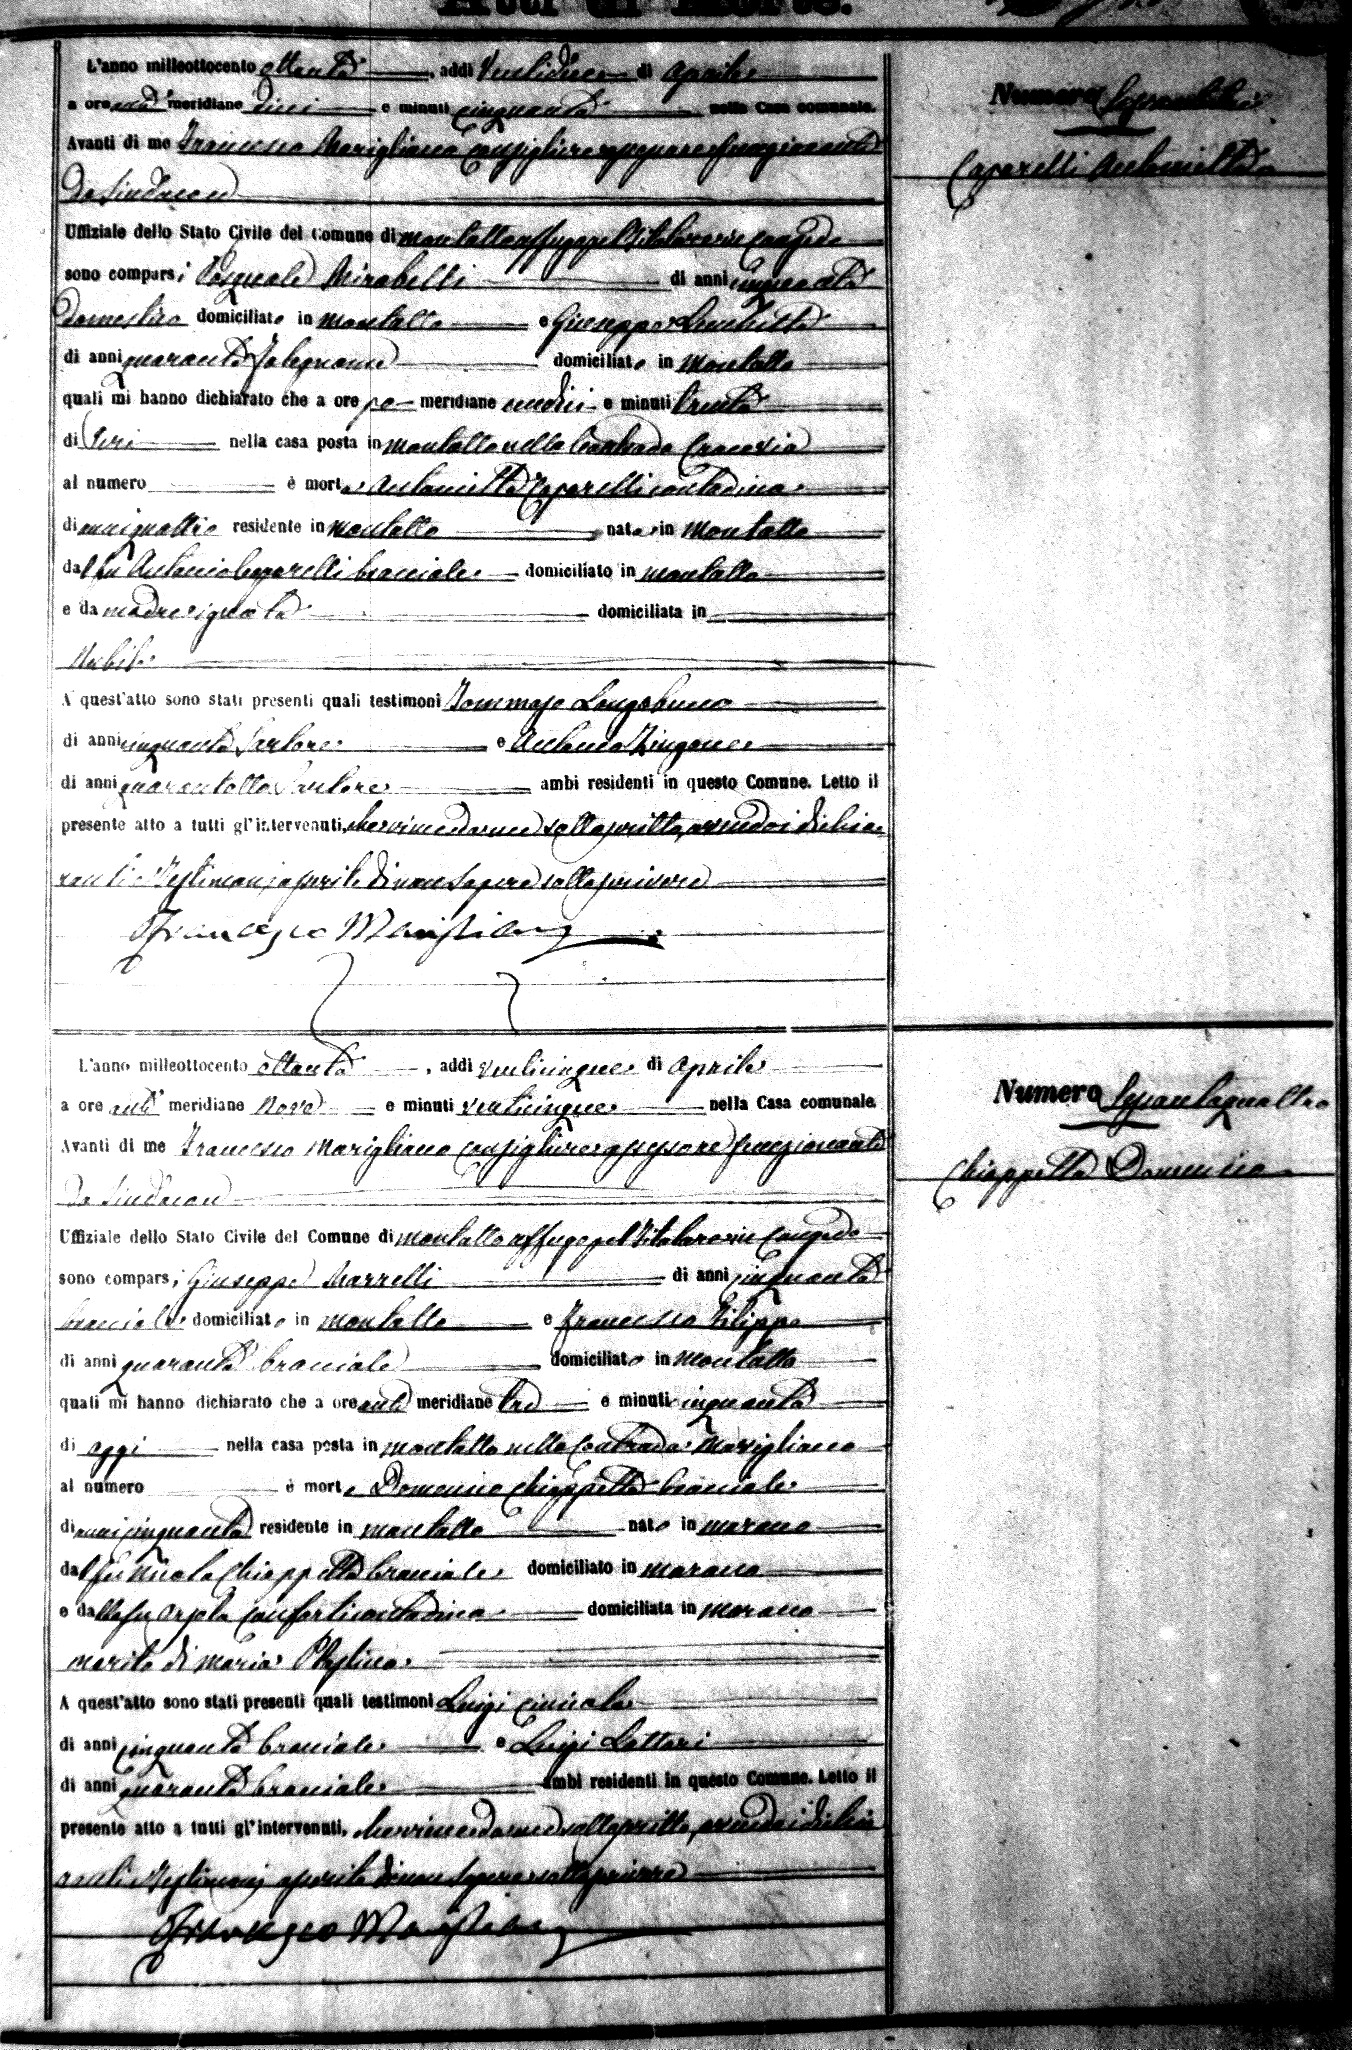 Atti di Morte.
L'anno milleottocento ottanta, addi ventidue di Aprile
a ore anti meridiane dieci e minuti cinquanta nella Casa comunale.
Avanti di me Francesco Marigliano Consigliere assessore funzionante
da Sindaco
Uffiziale dello Stato Civile del Comune di Montalto Uffugo pel Titolare in Congedo
sono comparsi Pasquale Mirabelli di anni cinquanta
domestico domiciliato in Montalto e Giuseppe
di anni quaranta falegname domiciliato in Montalto
quali mi hanno dichiarato che a ore po meridiane undici e minuti trenta
di Ieri nella casa posta in Montalto nella Contrada
al numero è morta Antonietta Caparelli contadina
di anni quattro residente in Montalto nata in Montalto
dal fu Antonio Caparelli bracciale domiciliato in Montalto
e da madre ignota domiciliata in
Nubile
A quest'atto sono stati presenti quali testimoni Tommaso Longobucco
di anni cinquanta Sartore e Antonio Zingone
di anni quarantotto Sartore ambi residenti in questo Comune. Letto il
presente atto a tutti gl'intervenuti, che viene da me sottoscritto, avendo i dichia
ranti e Testimoni asserito di non sapere sottoscrivere
Francesco Marigliano
Numero Sessantatre
Caparelli Antonietta
L'anno milleottocento ottanta, addi venticinque di Aprile
a ore anti meridiane Nove e minuti venticinque nella Casa comunale.
Avanti di me Francesco Marigliano Consigliere assessore funzionante
da Sindaco
Uffiziale dello Stato Civile del Comune di Montalto Uffugo pel Titolare in Congedo
sono comparsi Giuseppe Marrelli di anni cinquanta
bracciale domiciliato in Montalto e Francesco Filippo
di anni quaranta bracciale domiciliato in Montalto
quali mi hanno dichiarato che a ore anti meridiane tre e minuti cinquanta
di oggi nella casa posta in Montalto nella Contrada Marigliano
al numero è morto Domenico Chiappetta bracciale
di anni cinquanta residente in Montalto nato in Marano
dal fu Nicola Chiappetta bracciale domiciliato in Marano
e dalla fu Orsola Conforti contadina domiciliata in Marano
marito di Maria
A quest'atto sono stati presenti quali testimoni Luigi
di anni cinquanta bracciale e Luigi Lattari
di anni quaranta bracciale ambi residenti in questo Comune. Letto il
presente atto a tutti gl'intervenuti, che viene da me sottoscritto, avendo i dichia
ranti e Testimoni asserito di non sapere sottoscrivere
Francesco Marigliano
Numero Sessantaquattro
Chiappetta Domenico